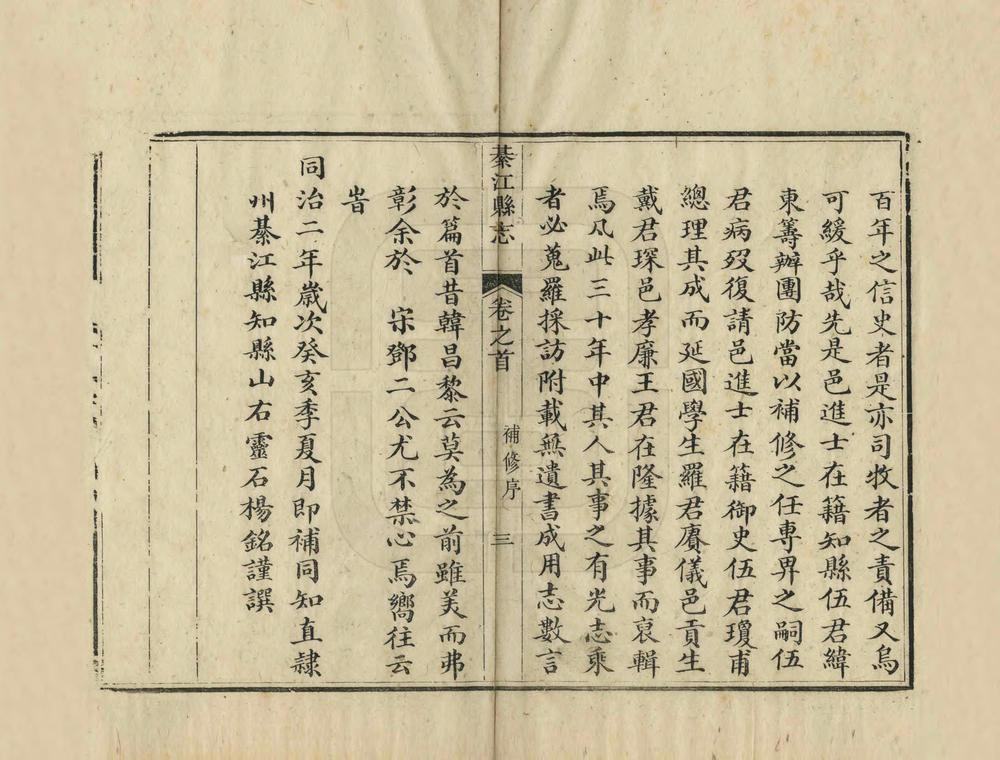 百年之信史者是亦司牧者之責備又烏
可緩乎哉先是邑進士在籍知縣伍君緯
東籌辦團防當以補修之任專畀之嗣伍
君病歿復請邑進士在籍御史伍君瓊甫
總理其成而延國學生羅君賡儀邑貢生
戴君琛邑孝廉王君在隆據其事而裒輯
焉凡此三十年中其人其事之有光志乘
者必蒐羅採訪附載無遺書成用志數言
綦江縣志 卷之首 補修序 三
於篇首昔韓昌黎云莫為之前雖美而弗
彰余於 宋鄧二公尤不禁心焉嚮往云
旹
同治二年歲次癸亥季夏月即補同知直隸
州綦江縣知縣山右靈石楊銘謹譔